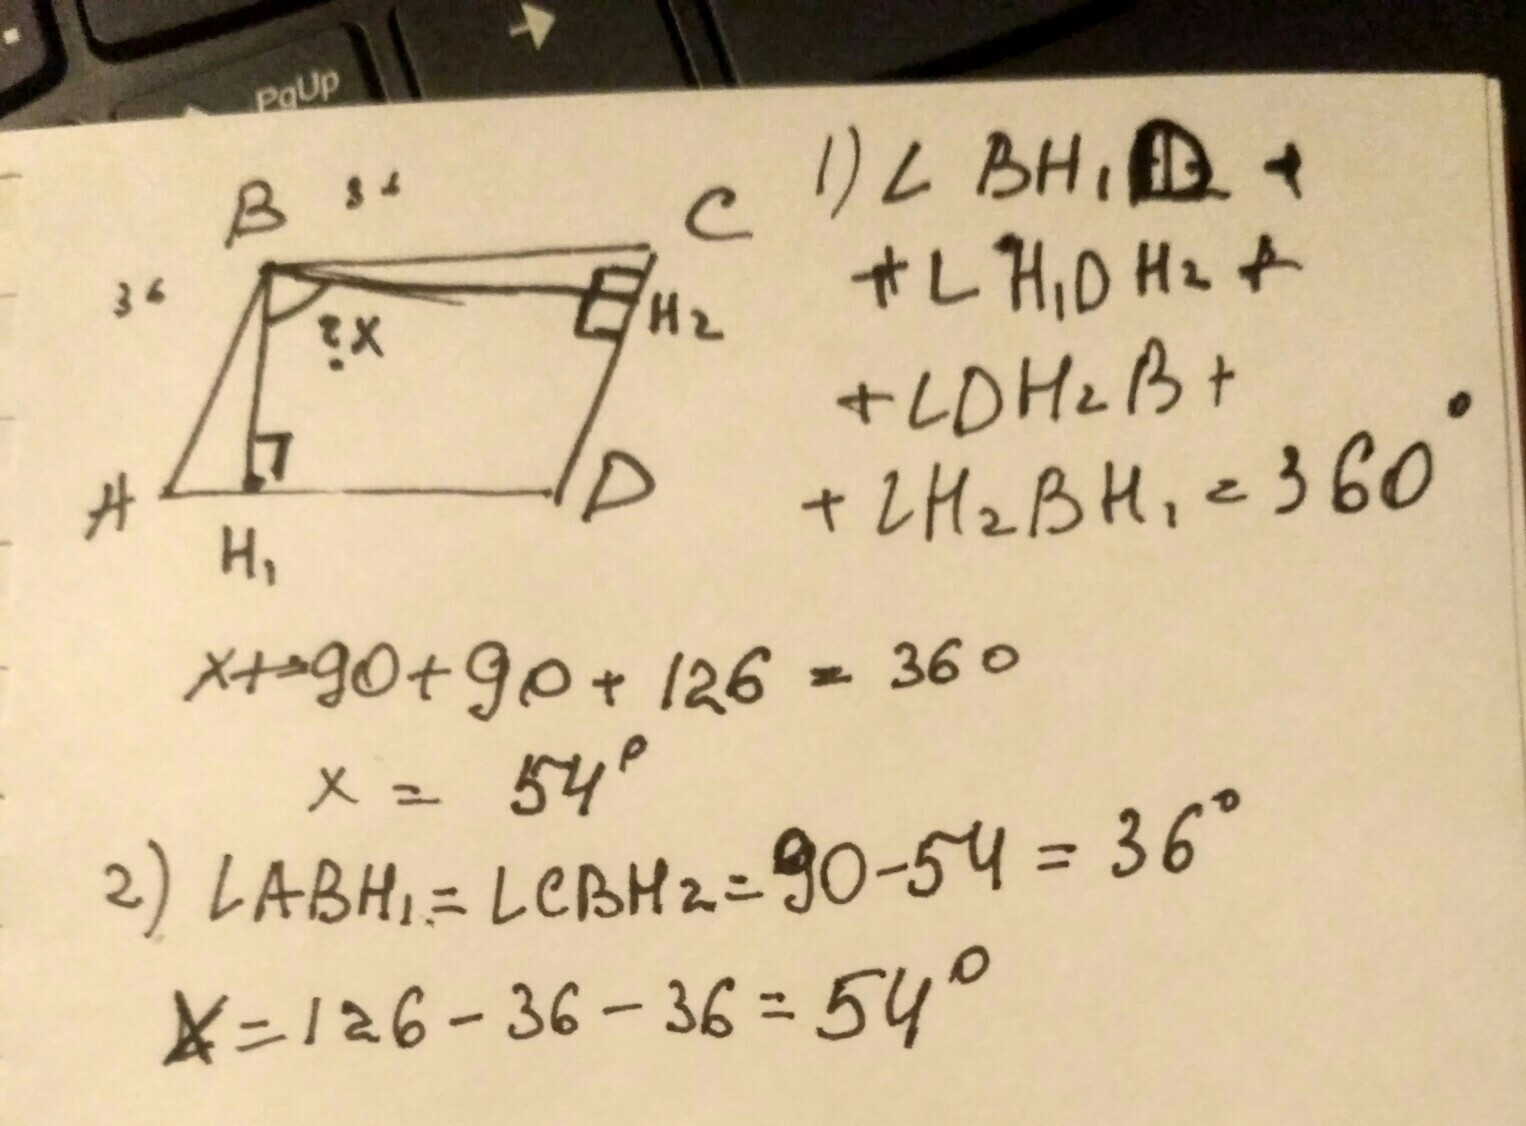 PgUp
B 36 C
36
?x
H2
A D
H1
1) ∠ BH1D +
+ ∠ H1DH2 +
+ ∠DH2B +
+ ∠H2BH1 = 360°
x+90+90+126 = 360
x = 54°
2) ∠ABH1 = ∠CBH2 = 90-54 = 36°
x = 126 - 36 - 36 = 54°